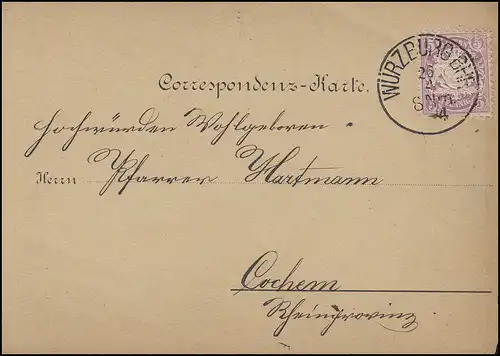 WÜRZBURG BHF.
26
4
8 Nm
4
Correspondenz-Karte.
Hochwürden Wohlgeboren
Herrn Pfarrer Hartmann
Cochem
Rheinprovinz